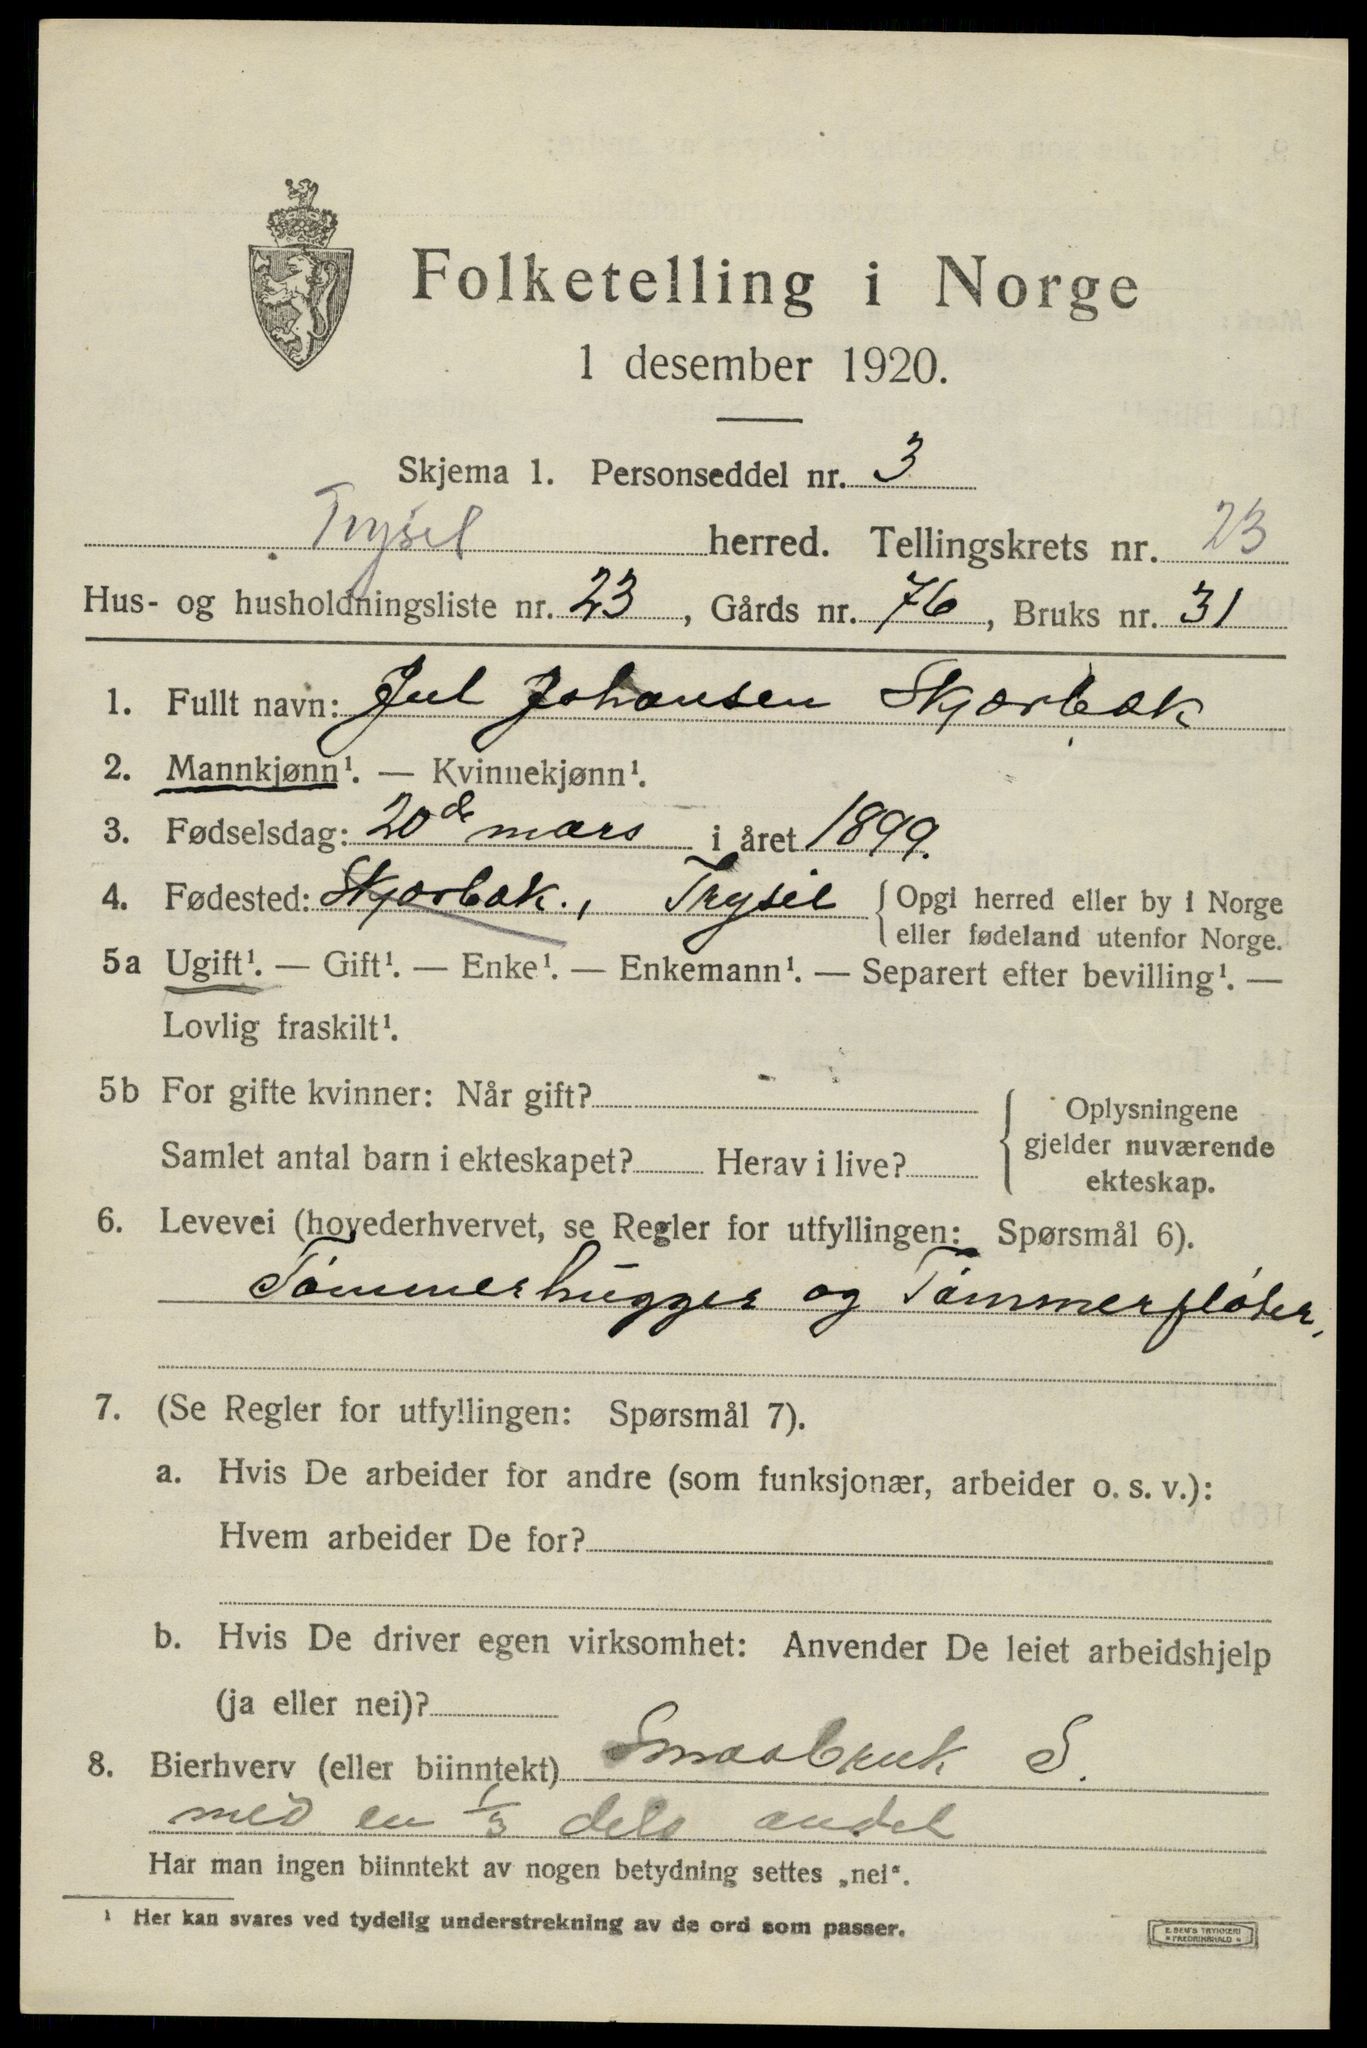 Folketelling i Norge
1 desember 1920.
Skjema 1. Personseddel nr. 3
Trysil herred. Tellingskrets nr. 23
Hus- og husholdningsliste nr. 23, Gårds nr. 76, Bruks nr. 31
1. Fullt navn: Jul Johansen Skjærbæk
2. Mannkjønn¹. — Kvinnekjønn¹.
3. Fødselsdag: 20de mars i året 1899.
4. Fødested: Skjærbæk., Trysil { Opgi herred eller by i Norge
eller fødeland utenfor Norge.
5a Ugift¹. — Gift¹. — Enke¹. — Enkemann¹. — Separert efter bevilling¹. —
Lovlig fraskilt¹.
5b For gifte kvinner: Når gift?
Samlet antal barn i ekteskapet? Herav i live?
{ Oplysningene
gjelder nuværende
ekteskap.
6. Levevei (hovederhvervet, se Regler for utfyllingen: Spørsmål 6).
Tømmerhugger og Tømmerfløter,
7. (Se Regler for utfyllingen: Spørsmål 7).
a. Hvis De arbeider for andre (som funksjonær, arbeider o. s. v.):
Hvem arbeider De for?
b. Hvis De driver egen virksomhet: Anvender De leiet arbeidshjelp
(ja eller nei)?
8. Bierhverv (eller biinntekt) Smaabruk S.
med en 1/3 dels andel
Har man ingen biinntekt av nogen betydning settes „nei“.
¹ Her kan svares ved tydelig understrekning av de ord som passer.
E. SEM'S TRYKKERI
FREDRIKSHALD